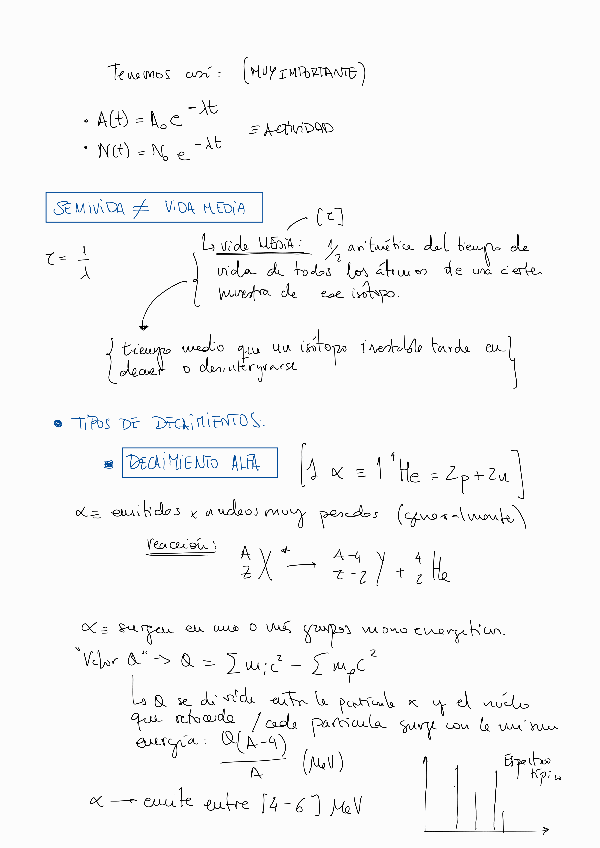 Tenemos así: (MUY IMPORTANTE)
• A(t) = A₀ e^-λt
≡ ACTIVIDAD
• N(t) = N₀ e^-λt
SEMIVIDA ≠ VIDA MEDIA
[τ]
τ = 1/λ
↳ vida MEDIA: 1/2 aritmética del tiempo de
vida de todos los átomos de una cierta
muestra de ese isótopo.
{ tiempo medio que un isótopo inestable tarda en
decaer o desintegrarse }
• TIPOS DE DECAIMIENTOS.
DECAIMIENTO ALFA [1 α ≡ 1 ⁴He = 2p + 2n]
α ≡ emitidas x núcleos muy pesados (generalmente)
reacción: A Z X* → A-4 Z-2 Y + 4 2 He
α ≡ surgen en uno o más grupos monoenergéticos.
"Valor Q" → Q = Σ mᵢc² − Σ mₚc²
↳ Q se divide entre la partícula α y el núcleo
que retrocede / cada partícula surge con la misma
energía: Q(A-4)/A (MeV)
Espectro
típico
α → emite entre [4-6] MeV